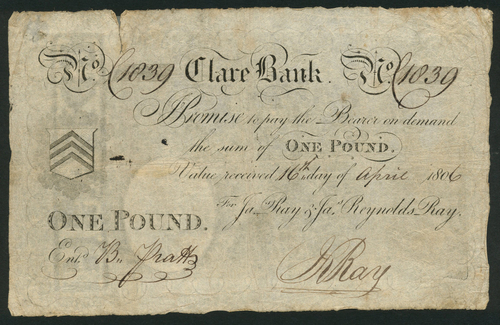 No. 1839 Clare Bank. No. 1839
I Promise to pay the Bearer on demand
the sum of ONE POUND.
Value received 16th day of April 1806
For Jas. Ray & Jas. Reynolds Ray.
ONE POUND.
Entd. B. Pratt
Js Ray